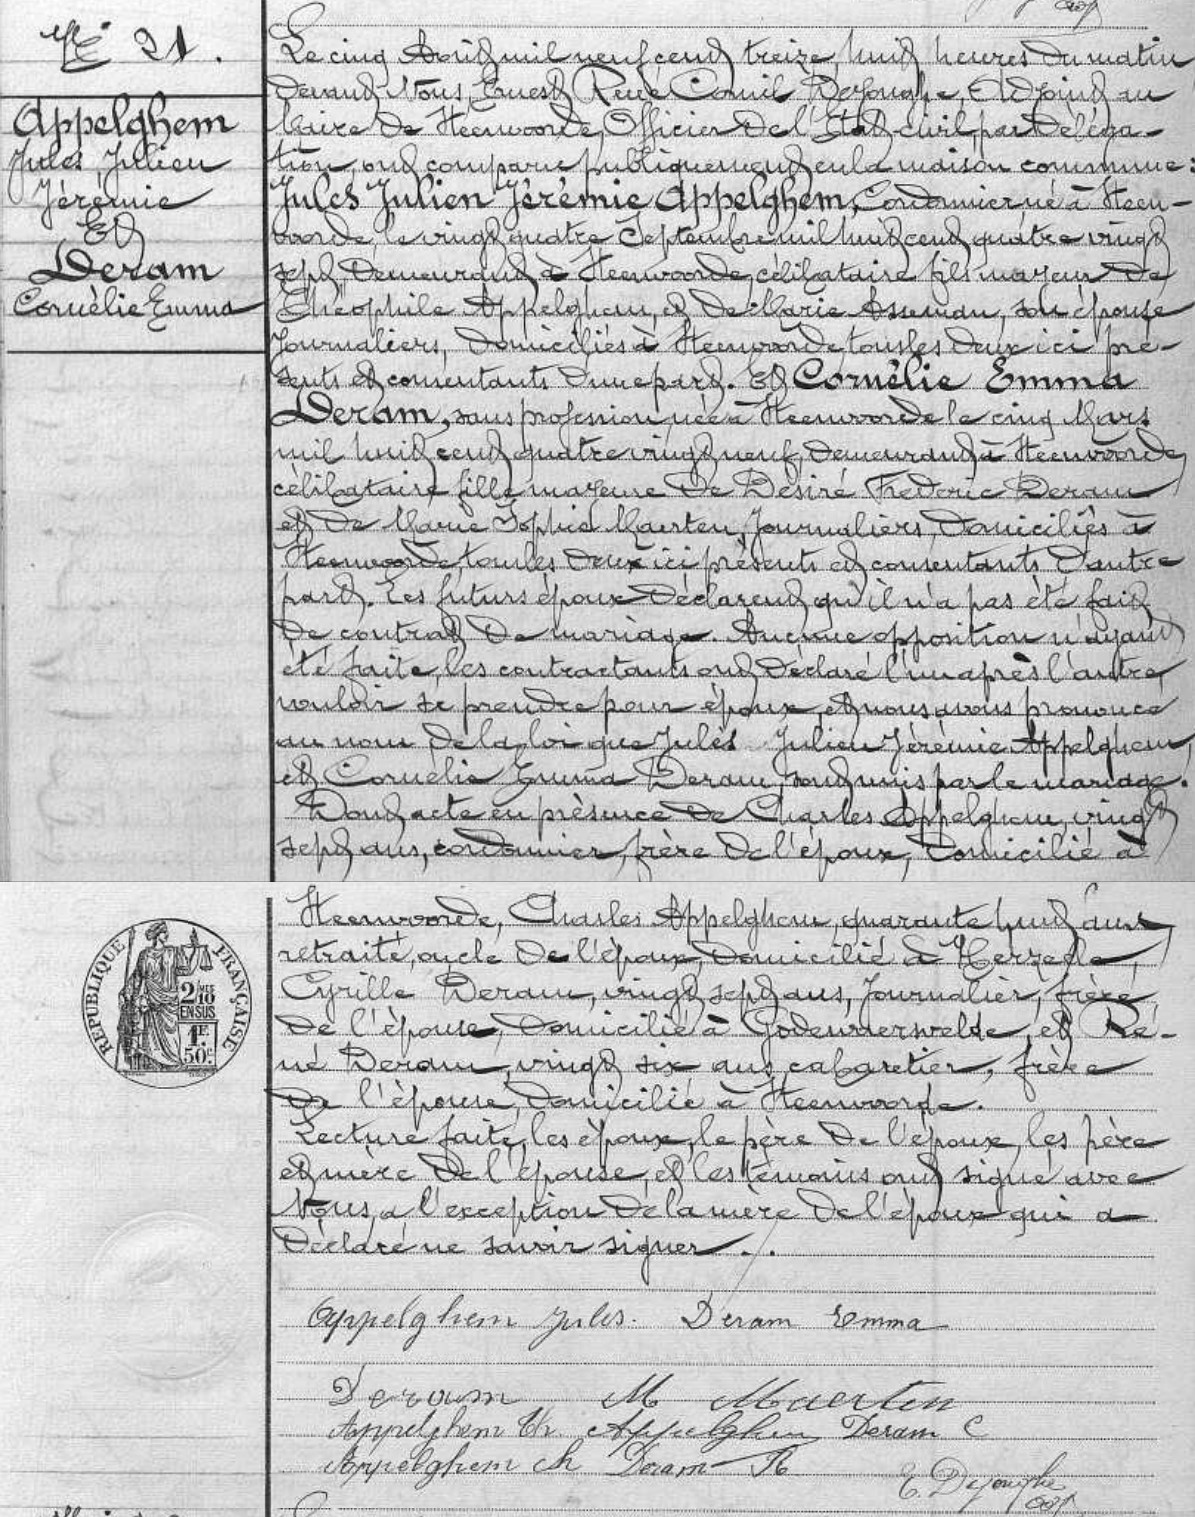 N° 21.
Appelghem
Jules Julien
Jérémie
Et
Deram
Cornélie Emma
Le cinq Avril mil neuf cent treize, huit heures du matin
devant Nous, Ernest René Cornil Dejonghe, Adjoint au
Maire de Steenvoorde, Officier de l'Etat-civil par déléga-
tion, ont comparu publiquement en la maison commune:
Jules Julien Jérémie Appelghem, Cordonnier né à Steen-
voorde, le vingt quatre Septembre mil huit cent quatre vingt
sept, demeurant à Steenvoorde, célibataire fils majeur de
Théophile Appelghem, et de Marie Asseman, son épouse
Journaliers, domiciliés à Steenvoorde tous les deux ici pré-
sents et consentants d'une part. Et Cornélie Emma
Deram, sans profession née à Steenvoorde le cinq Mars
mil huit cent quatre vingt neuf, demeurant à Steenvoorde,
célibataire, fille majeure de Désiré Fréderic Deram
et de Marie Sophie Maerten, Journaliers, domiciliés à
Steenvoorde, tous les deux ici présents et consentants d'autre
part. Les futurs époux déclarent qu'il n'a pas été fait
de contrat de mariage. Aucune opposition n'ayant
été faite, les contractants ont déclaré l'un après l'autre
vouloir se prendre pour époux, et nous avons prononcé
au nom de la loi que Jules Julien Jérémie Appelghem,
et Cornélie Emma Deram, sont unis par le mariage.
Dont acte en présence de Charles Appelghem, vingt
sept ans, cordonnier, frère de l'époux, domicilié à
Steenvoorde, Charles Appelghem, quarante huit ans,
retraité, oncle de l'époux, domicilié à Herzeele,
Cyrille Deram, vingt sept ans, Journalier, frère
de l'épouse, domicilié à Godewaersvelde, et Ré-
né Deram, vingt six ans cabaretier, frère
de l'épouse, domicilié à Steenvoorde.
Lecture faite, les époux, le père de l'époux, les père
et mère de l'épouse, et les témoins ont signé avec
Nous, a l'exception de la mère de l'époux qui a
déclaré ne savoir signer.
RÉPUBLIQUE FRANÇAISE
2/10MES
EN SUS
1F.
50C.
Appelghem Jules. Deram Emma
Deram M Maerten
Appelghem Th. Appelghem Deram C
Appelghem Ch Deram R
E. Dejonghe
adj